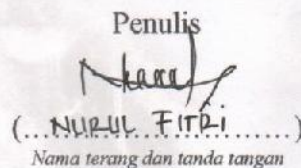 Penulis
(....NURUL FITRI............)
Nama terang dan tanda tangan